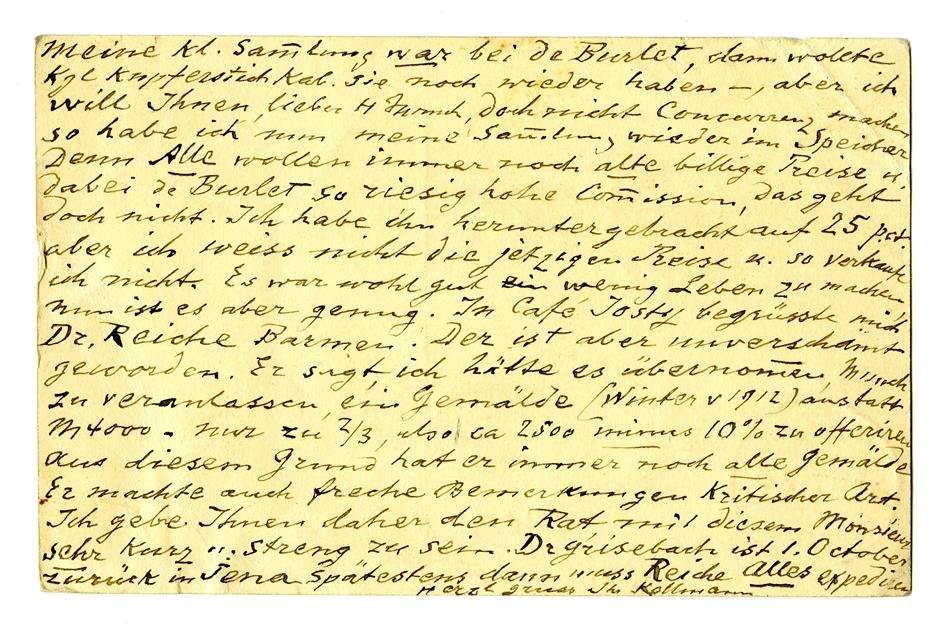 Meine kl. Sam̅lung war bei de Burlet, dann wollte
Kgl Kupferstich Kab. sie noch wieder haben –, aber ich
will Ihnen, lieber H Munch, doch nicht Concurrenz machen
so habe ich nun meine Sam̅lung wieder im Speicher
Denn Alle wollen immer noch alte billige Preise u.
dabei de Burlet so riesig hohe Com̅ission, das geht
doch nicht. Ich habe ihn heruntergebracht auf 25 pct.
aber ich weiss nicht die jetzigen Preise u. so verkaufe
ich nicht. Es war wohl gut ein wenig Leben zu machen
nun ist es aber genug. In Café Josty begrüsste mich
Dr. Reiche Barmen. Der ist aber unverschämt
geworden. Er sagt, ich hätte es übernom̅en, Munch
zu veranlassen, ein Gemälde (Winter v 1912) anstatt
M 4000 – nur zu 2/3, also ca 2500 minus 10% zu offeriren
aus diesem Grund hat er immer noch alle Gemälde
Er machte auch freche Bemerkungen kritischer Art.
Ich gebe Ihnen daher den Rat mit diesem Monsieur
sehr kurz u. streng zu sein. Dr Grisebach ist 1. October
zurück in Jena Spätestens dann muss Reiche Alles expediren
Herzl Gruss Ihr Kollmann